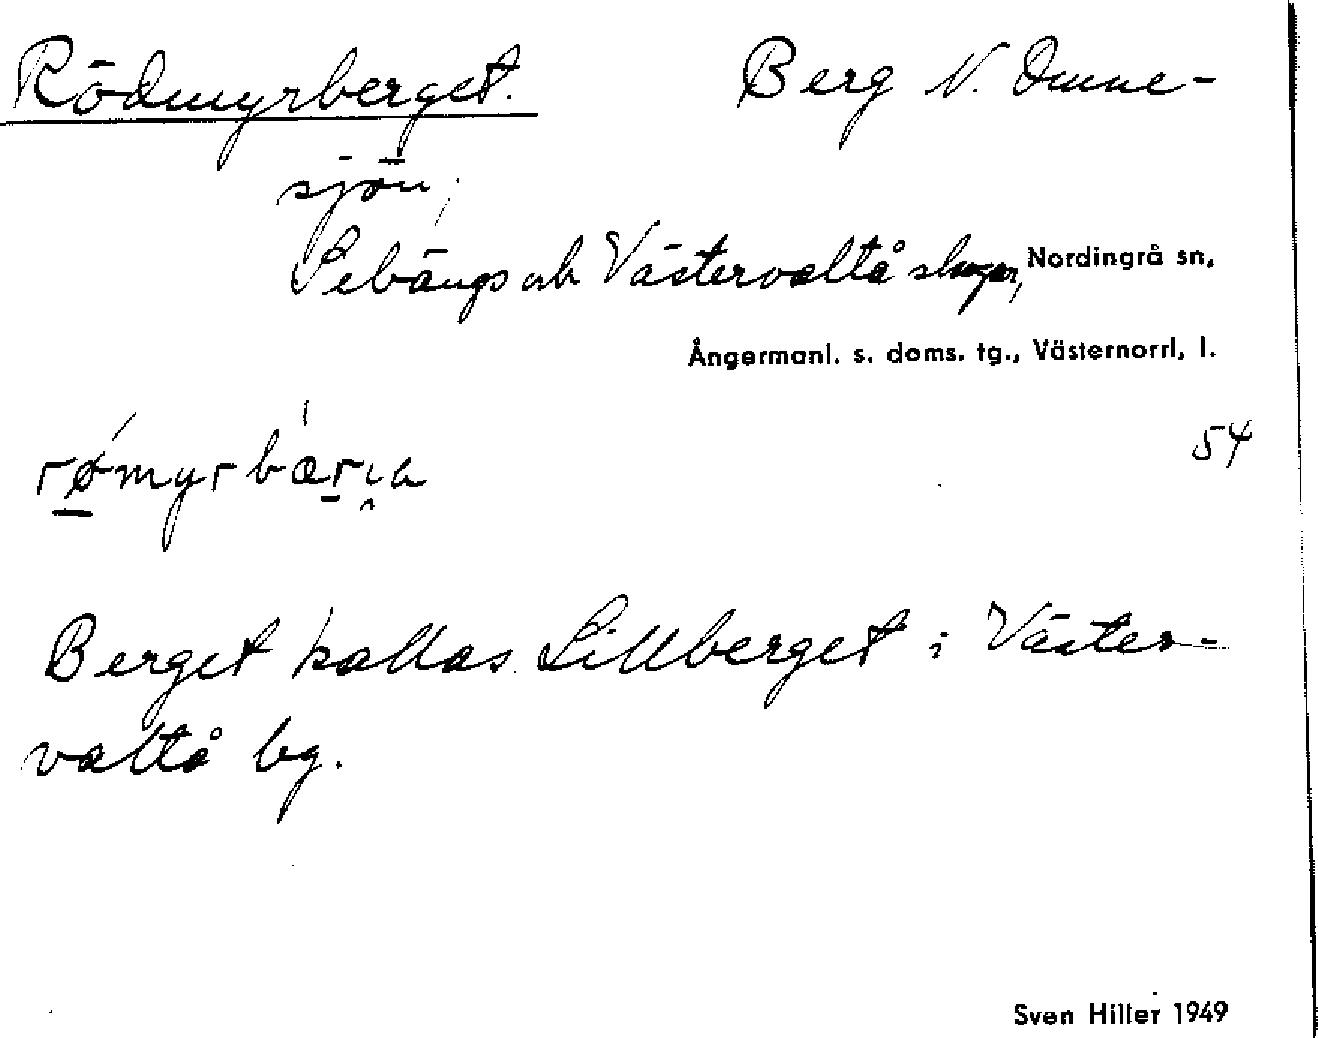 Rödmyrberget. Berg N. Omne-
sjön,
Sebängs och Västervaltå skogar, Nordingrå sn,
Ångermanl. s. doms. tg., Västernorrl, l.
54
Berget kallas Lillberget i Väster-
valtå bg.
Sven Hiller 1949